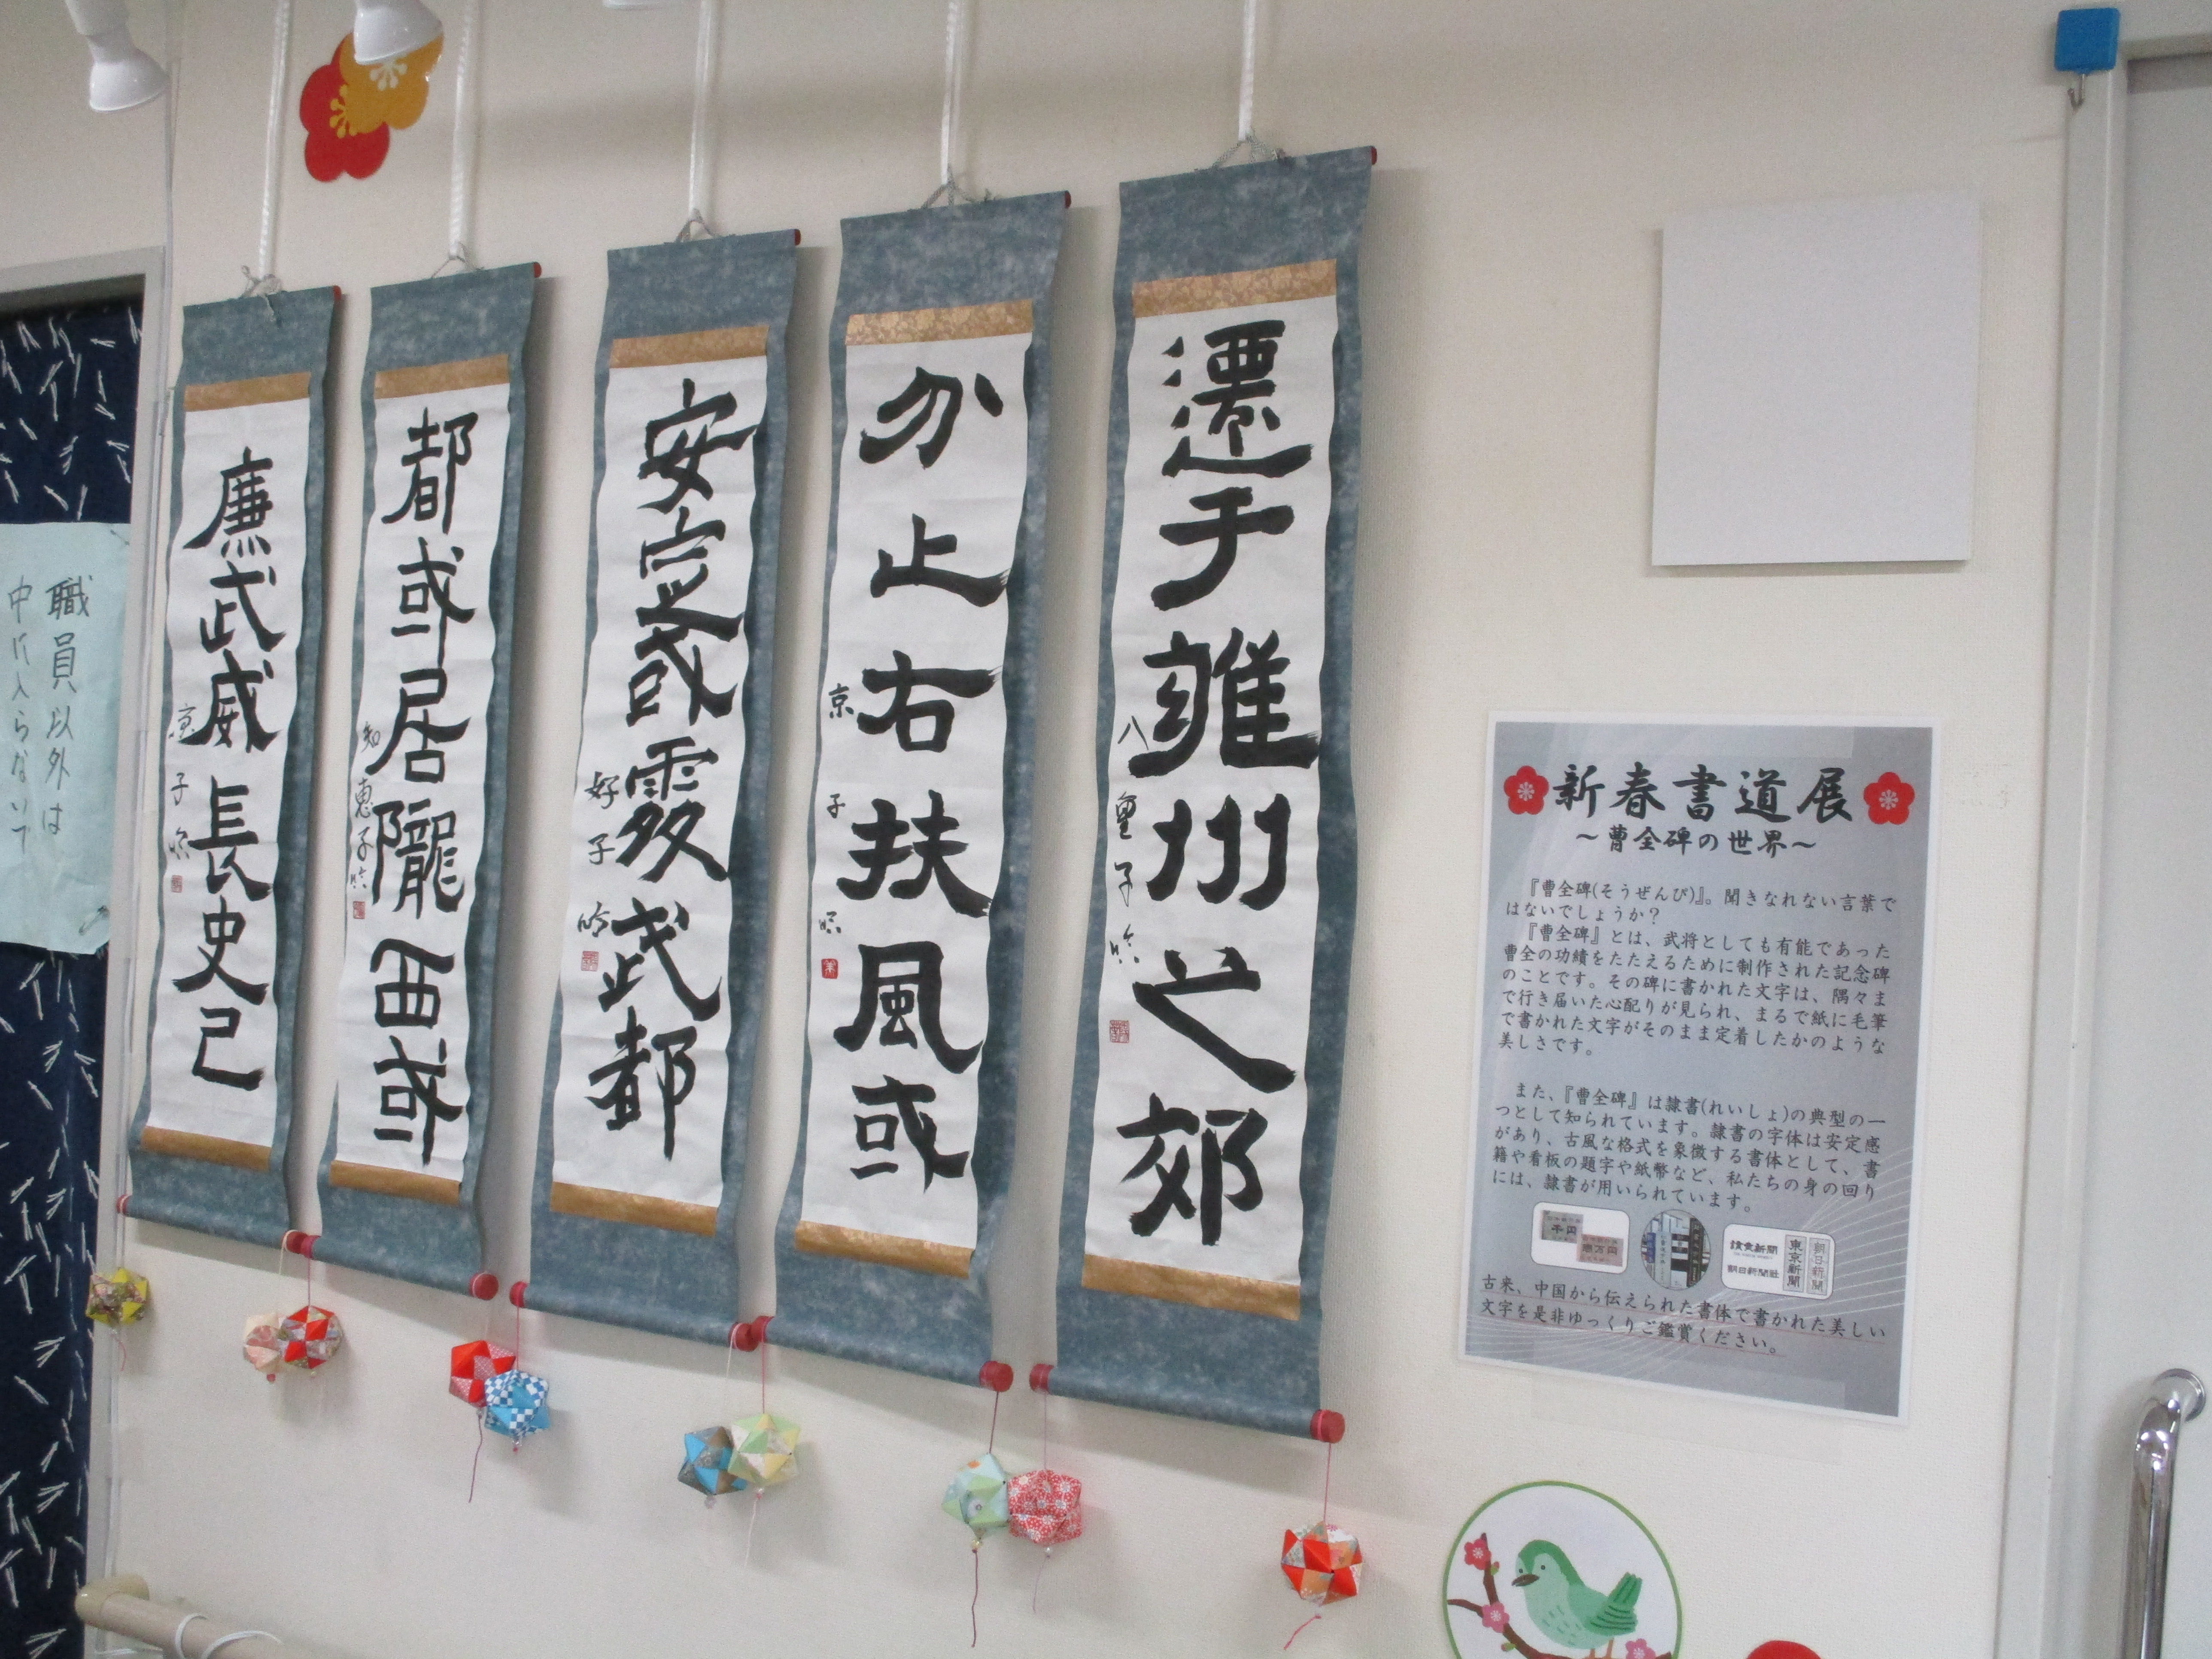 遷于雍州之郊
八重子
分止右扶風或
京子
安定或處武都
好子
都或居隴西或
知恵子
廉武威長史己
子
職員以外は
中に入らないで
新春書道展
～曹全碑の世界～
『曹全碑(そうぜんひ)』。聞きなれない言葉で
はないでしょうか？
『曹全碑』とは、武将としても有能であった
曹全の功績をたたえるために制作された記念碑
のことです。その碑に書かれた文字は、隅々ま
で行き届いた心配りが見られ、まるで紙に毛筆
で書かれた文字がそのまま定着したかのような
美しさです。
また、『曹全碑』は隷書(れいしょ)の典型の一
つとして知られています。隷書の字体は安定感
があり、古風な格式を象徴する書体として、書
籍や看板の題字や紙幣など、私たちの身の回り
には、隷書が用いられています。
千円
壱万円
讀賣新聞
朝日新聞社
東京新聞
朝日新聞
古来、中国から伝えられた書体で書かれた美しい
文字を是非ゆっくりご鑑賞ください。